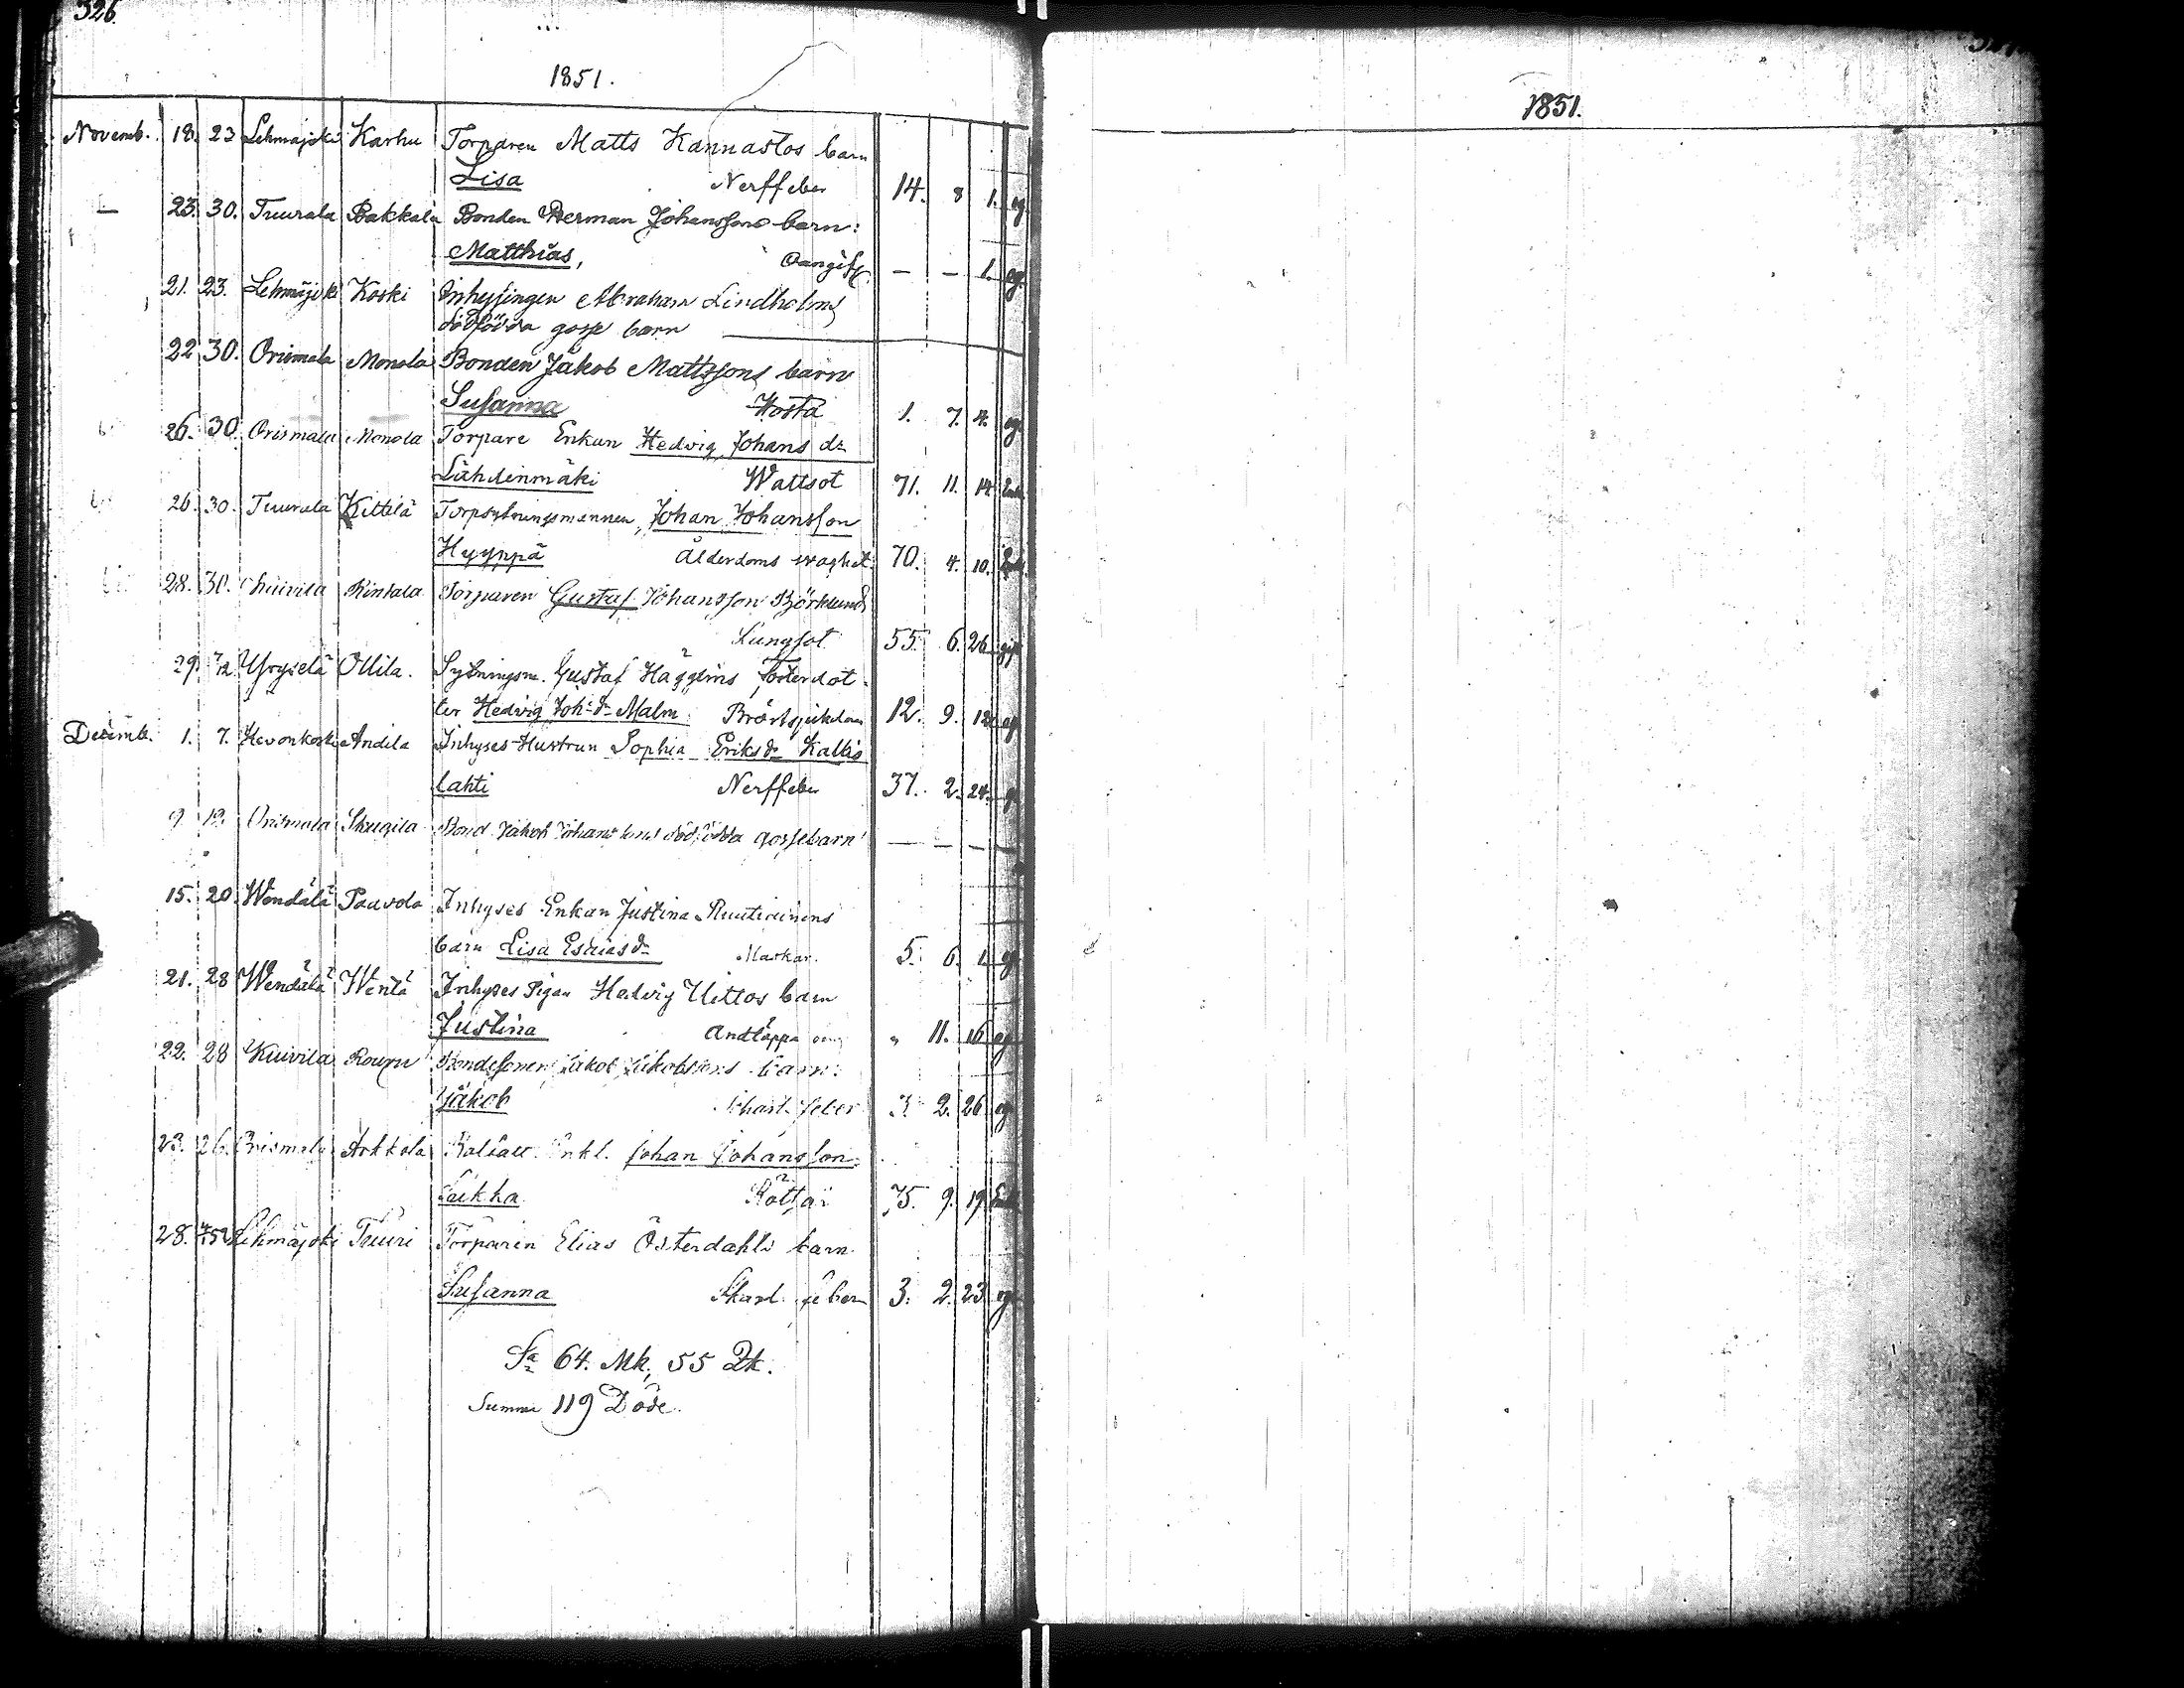 326.
1851.
Novemb. 18. 23 Lehmäjoki Karhu Torparen Matts Kannastos barn
Lisa Nerffeber 14. 8 1. og.
— 23. 30. Tuurala Pakkala Bonden Herman Johanssons barn:
Matthias, Oangifv. — — 1. og.
21. 23. Lehmäjoki Koski Inhysingen Abraham Lindholms
dödfödda gosse barn
22 30. Orismala Monola Bonden Jakob Mattssons barn
Susanna Hosta 1. 7. 4. og.
26. 30. Orismala Monola Torpare Enkan Hedvig Johans dr
Lähdenmäki Wattsot 71. 11. 14 Enk.
26. 30. Tuurala Kittilä Torpsytningsmannen Johan Johansson
Hyyppä Ålderdoms svaghet. 70. 4. 10.
28. 30. Kuivila Rintala Torparen Gustaf Johansson Björklund
Lungsot 55. 6. 26 gift
29. 7/12 Yryselä Ollila. Sytningsm. Gustaf Hägglins fosterdot
ter Hedvig Joh:s dr Malm Bröstsjukdom 12. 9. 12. og
Decemb. 1. 7. Hevonkoski Andila Inhyses Hustrun Sophia Eriks dr Kallis
lahti Nerffeber 37. 2. 24. g.
9. Orismala Skugila Bond. Jakob Johanssons dödfödda gossebarn — — —
15. 20. Wendälä Paavola Inhyses Enkan Justina Ruutiainens
barn Lisa Esaias dr Maskar. 5. 6. 1. og
21. 28 Wendälä Wentä Inhyses Pigan Hedvig Uittos barn
Justina Andtäppa „ 11. 16 og
22. 28 Kuivila Roupu Bondesonen Jakob Jakobssons barn:
Jakob Skarl. feber 3. 2. 26 og
23. 26. Orismala Arkkola Enkl. Johan Johansson
Laikka Rötfeber 75. 9. 19. Enkl.
28. Lehmäjoki Tuuri Torparen Elias Österdahls barn
Susanna Skarl. feber 3. 2. 23 og
Sa 64. Mk, 55 Qk.
Summa 119 Döde.
1851.